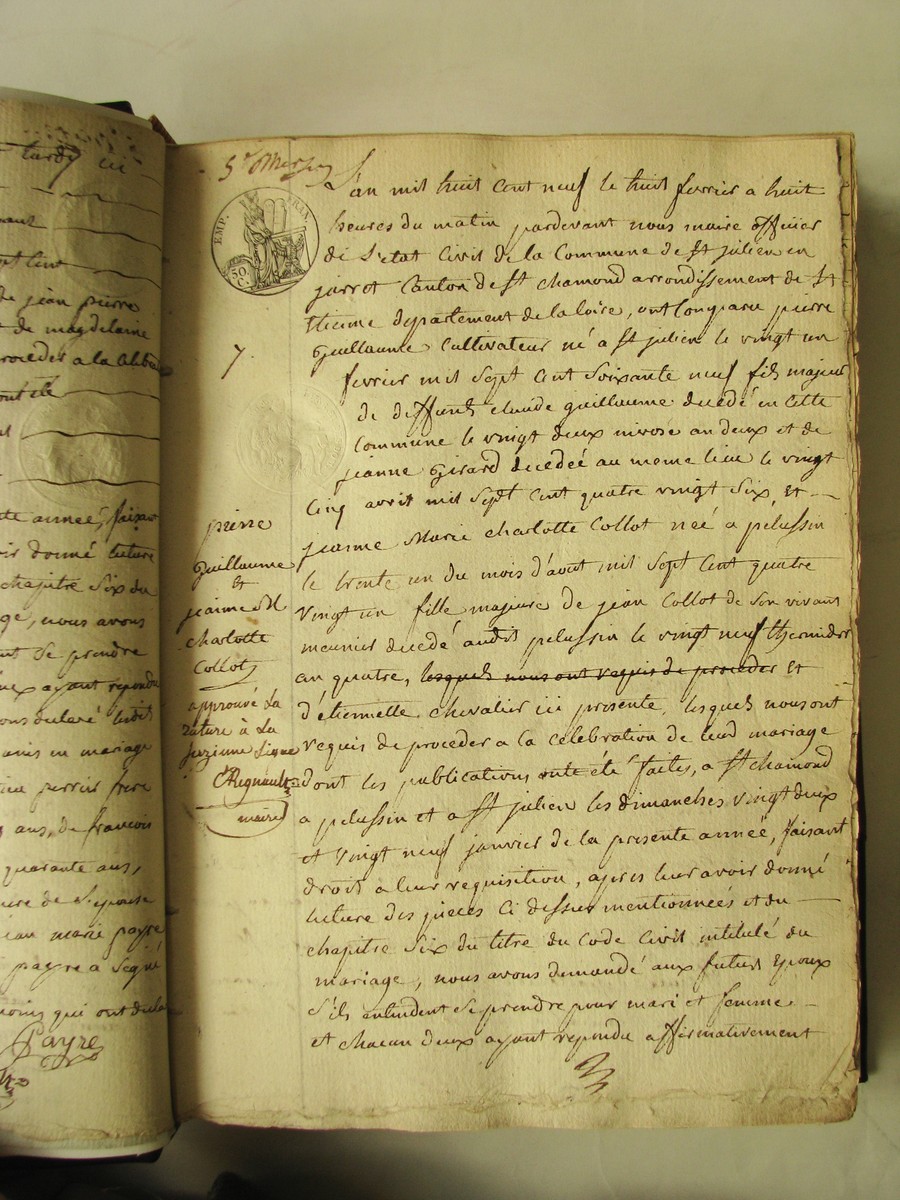 tardy ici
sept cent
de jean pierre
et de magdelaine
proceder a la celebra
ont été
cette année, faisant
oir donné luture
chapitre six du
age, nous avons
ent se prendre
eux ayant repondu
ons declaré
unis en mariage
perrin frere
ans, de francois
quarante ans,
de S. epouse
jean marie payre
payre a signé
moins qui ont declaré
Payre
EMP. FRAN.
50 C.
7.
pierre
Guillaume
et
jeanne M
charlotte
Collot
approuvé La
rature à La
seizieme Ligne
CRegnault
maire
L'an mil huit cent neuf le huit fevrier a huit
heures du matin pardevant nous maire officier
de L'etat Civil de la Commune de St julien en
jarrot Canton de St chamond arrondissement de St
Etienne departement de la loire, ont Comparu pierre
Guillaume Cultivateur né a St julien le vingt un
fevrier mil Sept Cent Soixante neuf fils majeur
de deffunts claude guillaume decedé en Cette
Commune le vingt deux nivose an deux et de
jeanne Girard decedeé au meme lieu le vingt
Cinq avril mil Sept Cent quatre vingt Six, et
jeanne Marie charlotte Collot neé a pelussin
le trente un du mois d'aout mil Sept Cent quatre
vingt un fille majeure de jean Collot de Son vivant
meunier decedé audit pelussin le vingt neuf thermidor
an quatre, lesquels nous ont requis de proceder et
d'etiennette chevalier ici presente, lesquels nous ont
requis de proceder a la celebration de leud mariage
dont les publications ont été faites, a St chamond
a pelussin et a St julien les dimanches vingt deux
et vingt neuf janvier de la presente anneé, faisant
droit a leur requisition, apres leur avoir donné
luture des pieces Ci dessus mentionneés et du
chapitre Six du titre du Code Civil intitulé du
mariage, nous avons demandé aux futurs Epoux
S'ils entendent Se prendre pour mari et femme
et chacun deux ayant repondu affirmativement